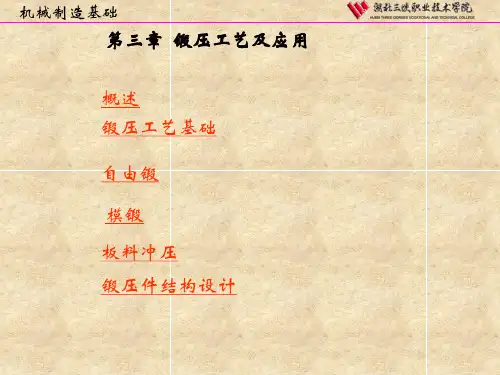 机械制造基础
湖北三峡职业技术学院
HUBEI THREE GORGES VOCATIONAL AND TECHNICAL COLLEGE
第三章 锻压工艺及应用
概述
锻压工艺基础
自由锻
模锻
板料冲压
锻压件结构设计